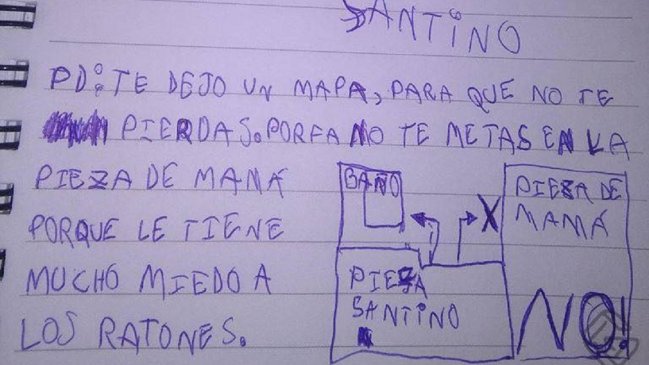 SANTINO
PD: TE DEJO UN MAPA, PARA QUE NO TE
PIERDAS. PORFA NO TE METAS EN LA
PIEZA DE MAMÁ
PORQUE LE TIENE
MUCHO MIEDO A
LOS RATONES.
BAÑO
X
PIEZA DE
MAMÁ
PIEZA
SANTINO
NO!